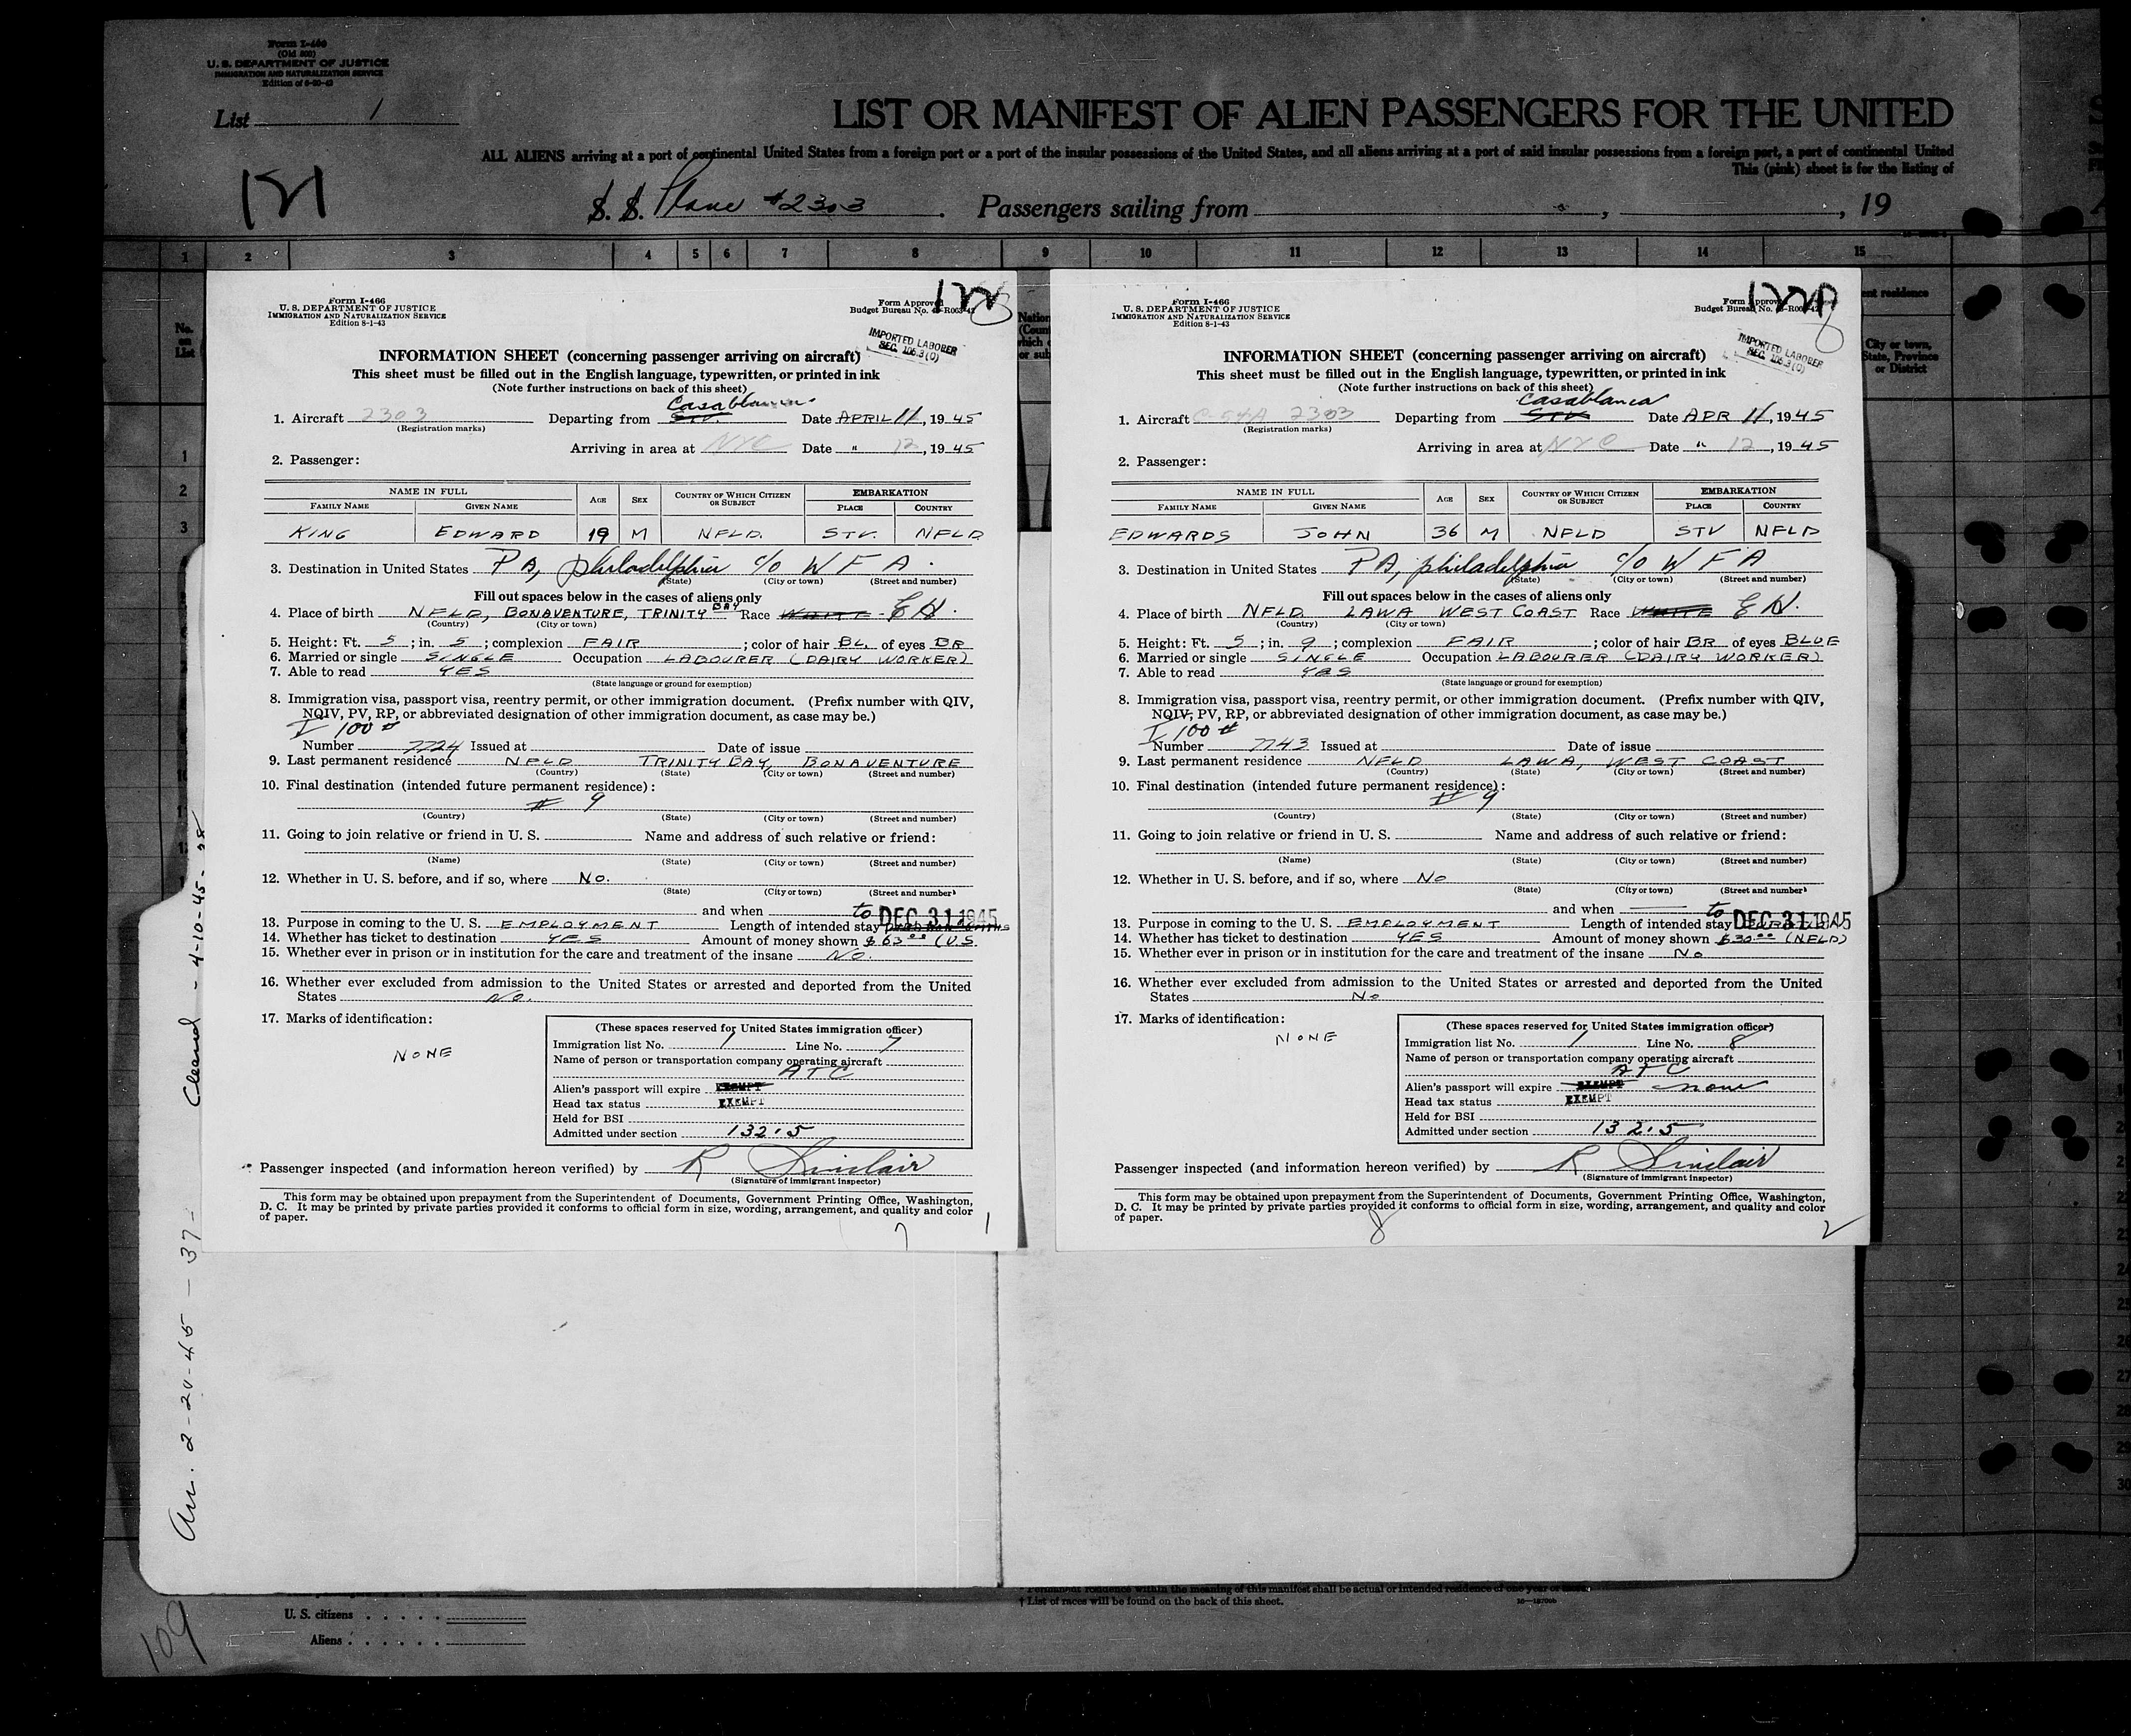 Form I-466
(Old 500)
U. S. DEPARTMENT OF JUSTICE
IMMIGRATION AND NATURALIZATION SERVICE
List 1
LIST OR MANIFEST OF ALIEN PASSENGERS FOR THE UNITED
ALL ALIENS arriving at a port of continental United States from a foreign port or a port of the insular possessions of the United States, and all aliens arriving at a port of said insular possessions from a foreign port, a port of continental United
This (pink) sheet is for the listing of
S. S. Plane #2303. Passengers sailing from , , 19
1 2 3 4 5 6 7 8 9 10 11 12 13 14 15
No. on List
Form I-466
U. S. DEPARTMENT OF JUSTICE
IMMIGRATION AND NATURALIZATION SERVICE
Edition 8-1-43
Form Approved
Budget Bureau No.
IMPORTED LABORER
SEC. 105.3(0)
INFORMATION SHEET (concerning passenger arriving on aircraft)
This sheet must be filled out in the English language, typewritten, or printed in ink
(Note further instructions on back of this sheet)
Casablanca
1. Aircraft 2303 Departing from STV. Date APRIL 11, 1945
(Registration marks)
Arriving in area at NYC Date " 12, 1945
2. Passenger:
NAME IN FULL AGE SEX COUNTRY OF WHICH CITIZEN OR SUBJECT EMBARKATION
FAMILY NAME GIVEN NAME PLACE COUNTRY
KING EDWARD 19 M NFLD. STV. NFLD
3. Destination in United States PA, Philadelphia c/o W F A
(State) (City or town) (Street and number)
Fill out spaces below in the cases of aliens only
4. Place of birth NFLD, BONAVENTURE, TRINITY BAY Race WHITE
(Country) (City or town)
5. Height: Ft. 5; in. 5; complexion FAIR; color of hair BL. of eyes BR
6. Married or single SINGLE Occupation LABOURER (DAIRY WORKER)
7. Able to read YES
(State language or ground for exemption)
8. Immigration visa, passport visa, reentry permit, or other immigration document. (Prefix number with QIV,
NQIV, PV, RP, or abbreviated designation of other immigration document, as case may be.)
I 100 #
Number 7724 Issued at Date of issue
9. Last permanent residence NFLD TRINITY BAY, BONAVENTURE
(Country) (State) (City or town) (Street and number)
10. Final destination (intended future permanent residence):
# 9
(Country) (State) (City or town) (Street and number)
11. Going to join relative or friend in U. S. Name and address of such relative or friend:
(Name) (State) (City or town) (Street and number)
12. Whether in U. S. before, and if so, where No.
(State) (City or town) (Street and number)
and when to DEC 31 1945
13. Purpose in coming to the U. S. EMPLOYMENT Length of intended stay
14. Whether has ticket to destination YES Amount of money shown $63.00 (U.S.
15. Whether ever in prison or in institution for the care and treatment of the insane NO.
16. Whether ever excluded from admission to the United States or arrested and deported from the United
States No.
17. Marks of identification:
NONE
(These spaces reserved for United States immigration officer)
Immigration list No. 1 Line No. 7
Name of person or transportation company operating aircraft
ATC
Alien's passport will expire EXEMPT
Head tax status EXEMPT
Held for BSI
Admitted under section 132.5
Passenger inspected (and information hereon verified) by R Sinclair
(Signature of immigrant inspector)
This form may be obtained upon prepayment from the Superintendent of Documents, Government Printing Office, Washington,
D. C. It may be printed by private parties provided it conforms to official form in size, wording, arrangement, and quality and color
of paper.
7 1
Form I-466
U. S. DEPARTMENT OF JUSTICE
IMMIGRATION AND NATURALIZATION SERVICE
Edition 8-1-43
Form Approved
Budget Bureau No.
IMPORTED LABORER
SEC. 105.3(0)
INFORMATION SHEET (concerning passenger arriving on aircraft)
This sheet must be filled out in the English language, typewritten, or printed in ink
(Note further instructions on back of this sheet)
Casablanca
1. Aircraft C-54A 2303 Departing from STV Date APR 11, 1945
(Registration marks)
Arriving in area at NYC Date " 12, 1945
2. Passenger:
NAME IN FULL AGE SEX COUNTRY OF WHICH CITIZEN OR SUBJECT EMBARKATION
FAMILY NAME GIVEN NAME PLACE COUNTRY
EDWARDS JOHN 36 M NFLD STV NFLD
3. Destination in United States PA, philadelphia c/o W F A
(State) (City or town) (Street and number)
Fill out spaces below in the cases of aliens only
4. Place of birth NFLD LAWA WEST COAST Race WHITE
(Country) (City or town)
5. Height: Ft. 5; in. 9; complexion FAIR; color of hair BR. of eyes BLUE
6. Married or single SINGLE Occupation LABOURER (DAIRY WORKER)
7. Able to read YES
(State language or ground for exemption)
8. Immigration visa, passport visa, reentry permit, or other immigration document. (Prefix number with QIV,
NQIV, PV, RP, or abbreviated designation of other immigration document, as case may be.)
I 100 #
Number 7743 Issued at Date of issue
9. Last permanent residence NFLD LAWA, WEST COAST
(Country) (State) (City or town) (Street and number)
10. Final destination (intended future permanent residence):
# 9
(Country) (State) (City or town) (Street and number)
11. Going to join relative or friend in U. S. Name and address of such relative or friend:
(Name) (State) (City or town) (Street and number)
12. Whether in U. S. before, and if so, where No
(State) (City or town) (Street and number)
and when to DEC 31 1945
13. Purpose in coming to the U. S. EMPLOYMENT Length of intended stay
14. Whether has ticket to destination YES Amount of money shown $30.00 (NFLD)
15. Whether ever in prison or in institution for the care and treatment of the insane No
16. Whether ever excluded from admission to the United States or arrested and deported from the United
States No
17. Marks of identification:
NONE
(These spaces reserved for United States immigration officer)
Immigration list No. 1 Line No. 8
Name of person or transportation company operating aircraft
ATC
Alien's passport will expire EXEMPT none
Head tax status EXEMPT
Held for BSI
Admitted under section 132.5
Passenger inspected (and information hereon verified) by R Sinclair
(Signature of immigrant inspector)
This form may be obtained upon prepayment from the Superintendent of Documents, Government Printing Office, Washington,
D. C. It may be printed by private parties provided it conforms to official form in size, wording, arrangement, and quality and color
of paper.
8 2
City or town, State, Province or District
Cleared - 4-10-45-
2-20-45 - 37-
109
U. S. citizens
Aliens
* Permanent residence within the meaning of this manifest shall be actual or intended residence of one year or more.
† List of races will be found on the back of this sheet.